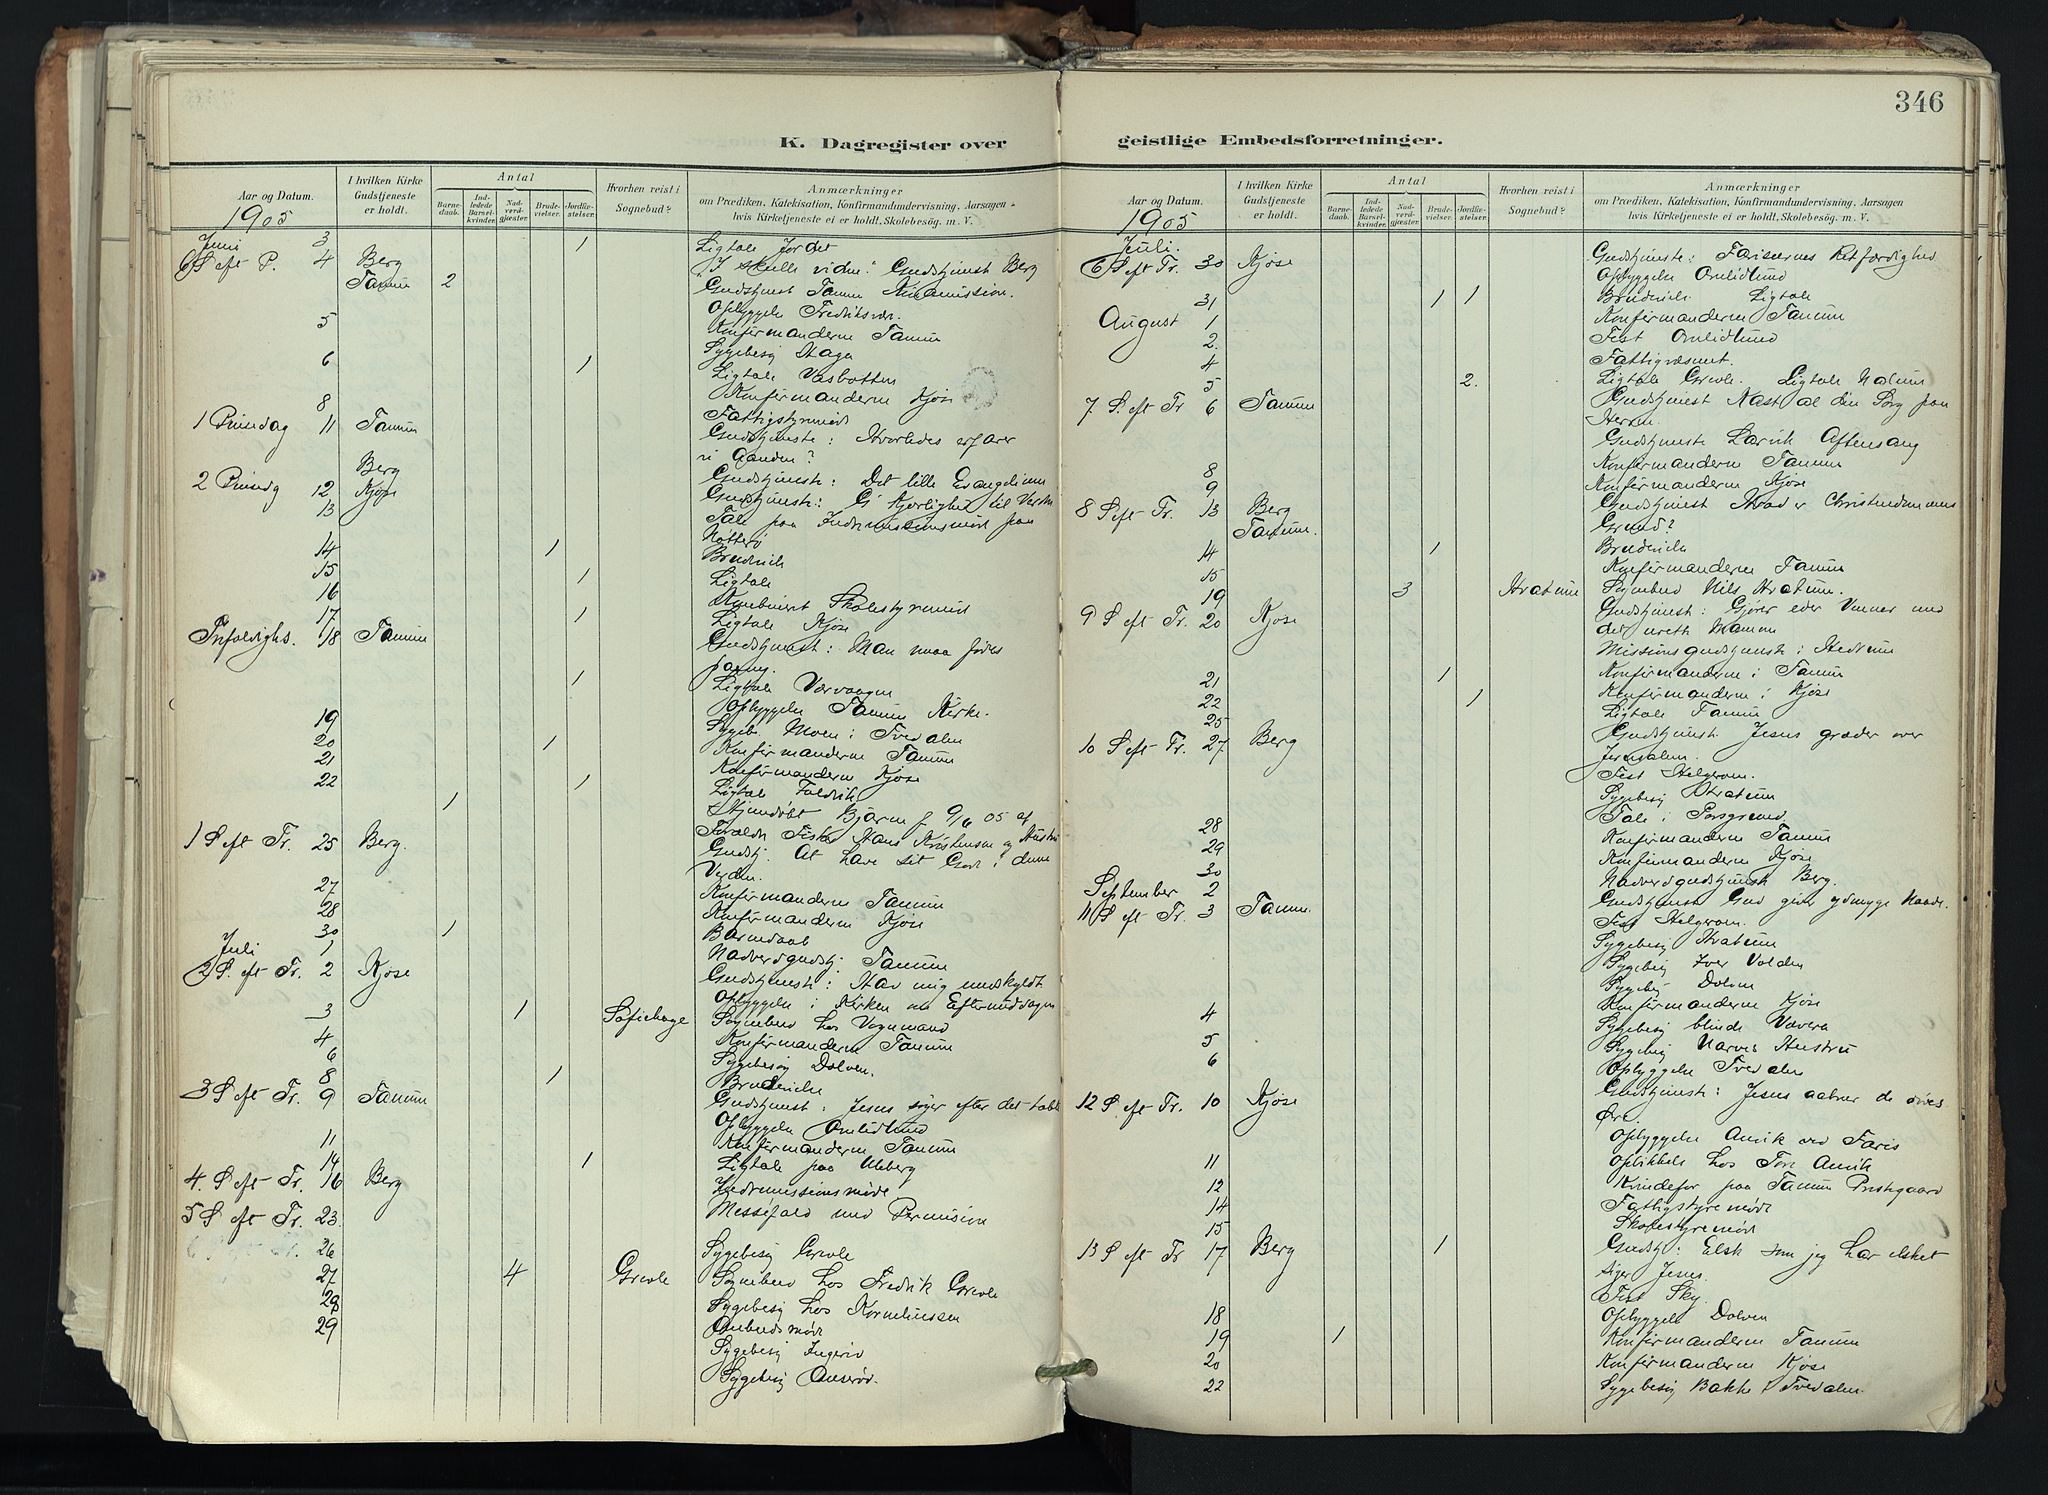 346
K. Dagregister over
geistlige Embedsforretninger.
Aar og Datum.
I hvilken Kirke Gudstjeneste er holdt.
Antal
Barnedaab.
Indledede Barselkvinder.
Nadverdgjæster.
Brudevielser.
Jordfæstelser.
Hvorhen reist i Sognebud?
Anmærkninger
om Prædiken, Katekisation, Konfirmandundervisning, Aarsagen hvis Kirketjeneste ei er holdt, Skolebesøg, m. V.
1905
Juni 3 1 Ligtale Jordet
6 S eft P. 4 Berg "I skulle vidne." Gudstjenest Berg
Tanum 2 Gudstjenest Tanum
Opbyggelse Fredriksværn.
5 Konfirmanderne Tanum
Sygebesøg Haga
6 1 Ligtale Vasbotten
Konfirmanderne Kjøse
8 Fattigstyremøde
1 Pinsedag 11 Tanum Gudstjeneste: Hvorledes erfarer
vi Aanden?
Berg Gudstjeneste: Det lille Evangelium
2 Pinsedg 12 Kjøse Gudstjeneste: Kjærlighed til
13 Tale paa Indremissionsmøde paa
Nøtterø
14 1 Brudevielse
15 1 Ligtale
16 Skolestyremøde
17 1 Ligtale Kjøse
Trefoldighs. 18 Tanum Gudstjenest: Man maa fødes
paany.
1 Ligtale Værvaagen
Opbyggelse Tanum Kirke.
19 Sygeb. Moen i Tvedalen
20 1 Konfirmanderne Tanum
21 Konfirmanderne Kjøse
22 1 Ligtale Foldvik
1 Hjemdøbt Bjarne f 9/6 05 af
Forældr Hans Kristensen og Hustru
1 S eft Tr. 25 Berg. Gudstj. At have sit Gode i denne
Verden.
27 Konfirmanderne Tanum
28 Konfirmanderne Kjøse
30 1 Barnedaab
Juli 1 Nadverdgudstj. Tanum
2 S. eft Tr. 2 Kjøse Gudstjeneste: Hav mig undskyldt
Opbyggelse i Kirken om Eftermiddagen
3 1 Sofiehage Sognebud hos Vognmand
4 Konfirmanderne Tanum
6 Sygebesøg Dolven.
8 1 Brudevielse
3 S eft Tr. 9 Tanum Gudstjenest: Jesus søger efter det tabte
Opbyggelse Omlidlund
11 Konfirmanderne Tanum
14 1 Ligtale paa Uleberg
4. S eft Tr. 16 Berg Indremissionsmøde
5 S eft Tr. 23. Messefald med Permission
26 Sygebesøg Grevle
27 4 Grevle Sognebud hos Fredrik Grevle
28 Sygebesøg hos Korneliussen
29 Ombudsmøde
Sygebesøg
Sygebesøg
Aar og Datum.
I hvilken Kirke Gudstjeneste er holdt.
Antal
Barnedaab.
Indledede Barselkvinder.
Nadverdgjæster.
Brudevielser.
Jordfæstelser.
Hvorhen reist i Sognebud?
Anmærkninger
om Prædiken, Katekisation, Konfirmandundervisning, Aarsagen hvis Kirketjeneste ei er holdt, Skolebesøg, m. V.
1905
Juli.
6 S eft Tr. 30 Kjøse Gudstjeneste: Farisæernes Retfærdighed
Opbyggelse Omlidlund
31 1 1 Brudevielse Ligtale
August 1 Konfirmanderne Tanum
2. Fest Omlidlund
4 Fattigvæsnet.
5 2. Ligtale Grevle. Ligtale Nalum
7 S. eft Tr 6 Tanum Gudstjenest Kast al din Sorg paa
Herren.
Gudstjeneste Larvik Aftensang
8 Konfirmanderne Tanum
9 Konfirmanderne Kjøse
8 S eft Tr. 13 Berg Gudstjenest Hvad er Christendommens
Tanum. Grund?
14 1 Brudevielse
15 Konfirmanderne Tanum
19 3 Hvatum Sognebud Nils Hvatum.
9 S eft Tr. 20 Kjøse Gudstjenest: Gjører eder Venner med
det urette Mammon
Missionsgudstjeneste i Hedrum
21 1 Konfirmanderne i Tanum
22 1 Konfirmanderne i Kjøse
25 Ligtale Tanum
10 S eft Tr. 27 Berg Gudstjenest Jesus græder over
Jerusalem.
Fest Helgeroen.
Sygebesøg Hvatum
28 Tale i Porsgrund
29 Konfirmanderne Tanum
30 Konfirmanderne Kjøse
September 2 Nadverdgudstjenest Berg.
11 S eft Tr. 3 Tanum. Gudstjenest Gud giver ydmyge Naade.
Fest Helgeroen.
Sygebesøg Hvatum
Sygebesøg Iver Volden
Sygebesøg Dolven
4 Konfirmanderne Kjøse
5 Sygebesøg blinde
6 Sygebesøg Hustru
Opbyggelse Tvedalen
12 S. eft Tr. 10 Kjøse Gudstjeneste: Jesus aabner de døves
Øre.
Opbyggelse Anvik ved Faris
11 hos Tor Anvik
12 Kvindefor. paa Tanum Prestgaard
14 Fattigstyremøde
15 Skolestyremøde
13 S eft Tr 17 Berg 1 Gudstj: Elsk som jeg har elsket
siger Jesus.
Fest Sky
18 Opbyggelse Dolven
19 1 Konfirmanderne Tanum
20 Konfirmanderne Kjøse
22 Sygebesøg Bakke i Tvedalen.